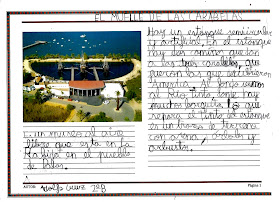 EL MUELLE DE LAS CARABELAS
Hay un estanque semicircular
y artificial. En el estanque
hay dos caminos que van
a las tres carabelas, que
fueron las que descubrieron
América. Al fondo vemos
el Río Tinto, donde hay
muchos barquitos. Lo que
separa el Tinto del estanque
es un trozo de terreno
con arena, árboles y
arbustos.
Es un museo al aire
libre que esta en la
Rabida en el pueblo
de Palos.
AUTOR:
Página 1